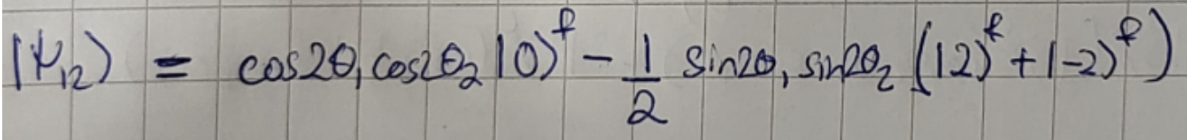 |ψ₁₂⟩ = cos2θ₁cos2θ₂|0⟩ᶠ - 1/2 sin2θ₁sin2θ₂(|2⟩ᶠ+|-2⟩ᶠ)